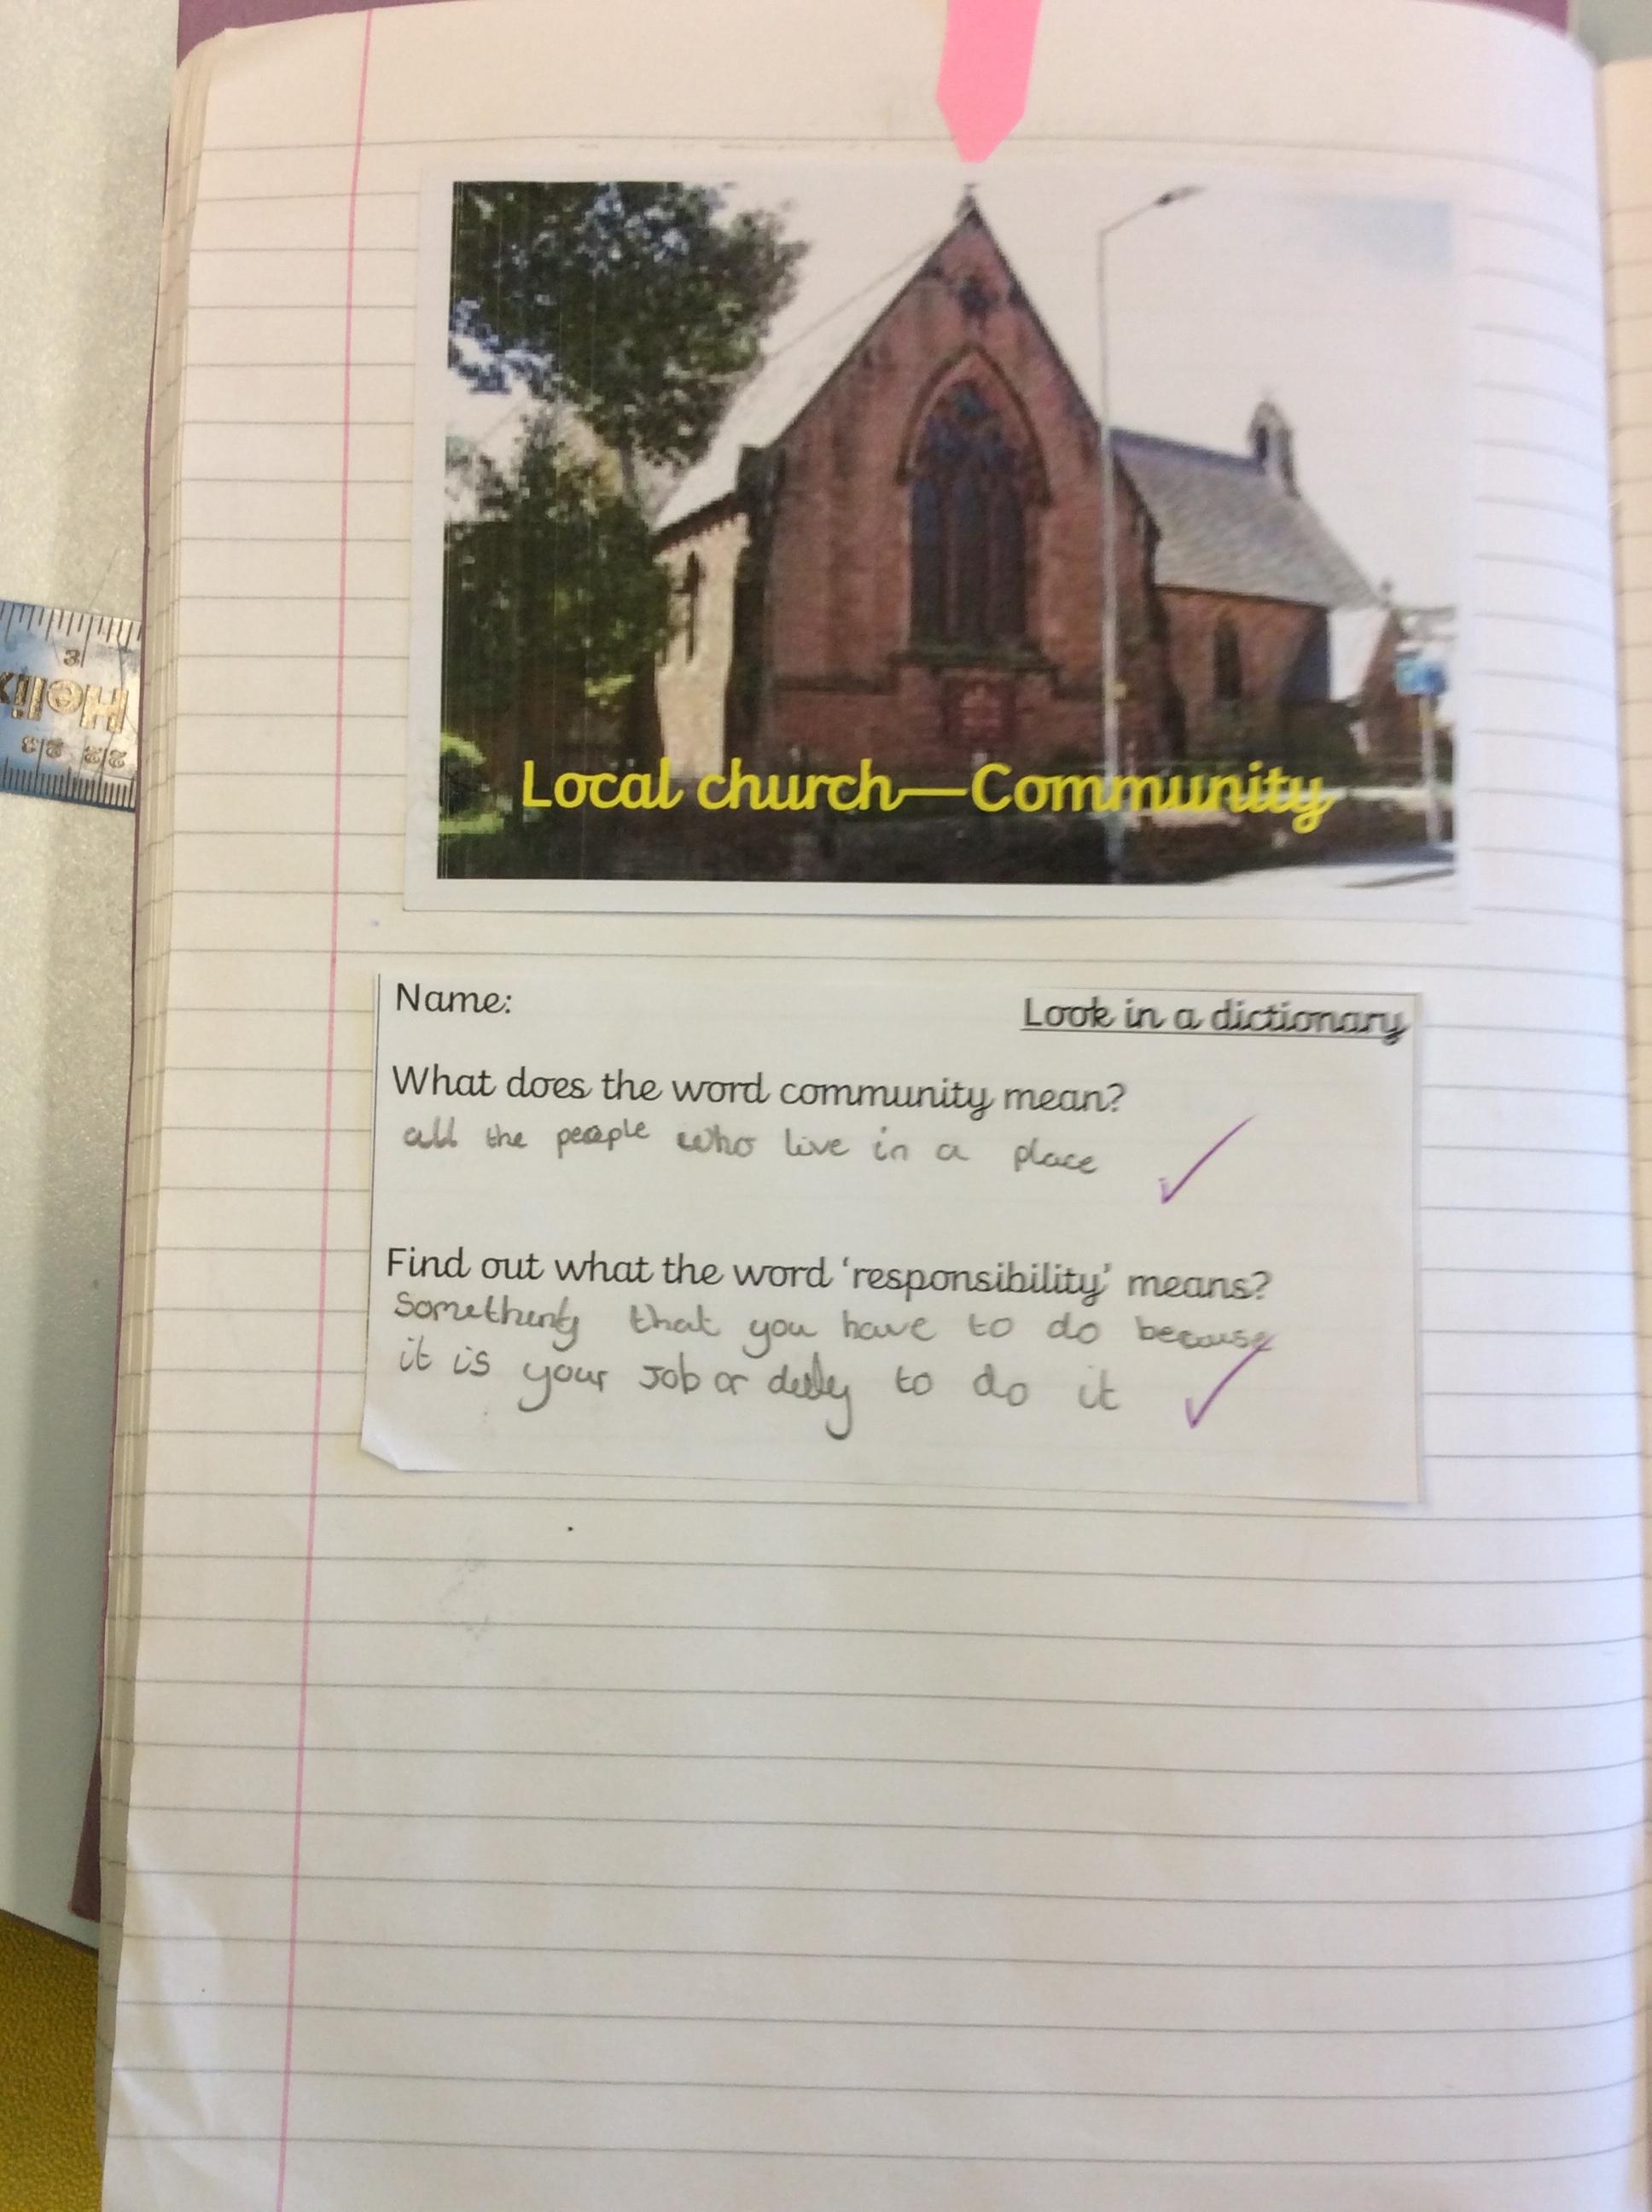 Local church—Community
Name:
Look in a dictionary
What does the word community mean?
all the people who live in a place
Find out what the word 'responsibility' means?
Something that you have to do because
it is your Job or duty to do it
3
Helix
23 22